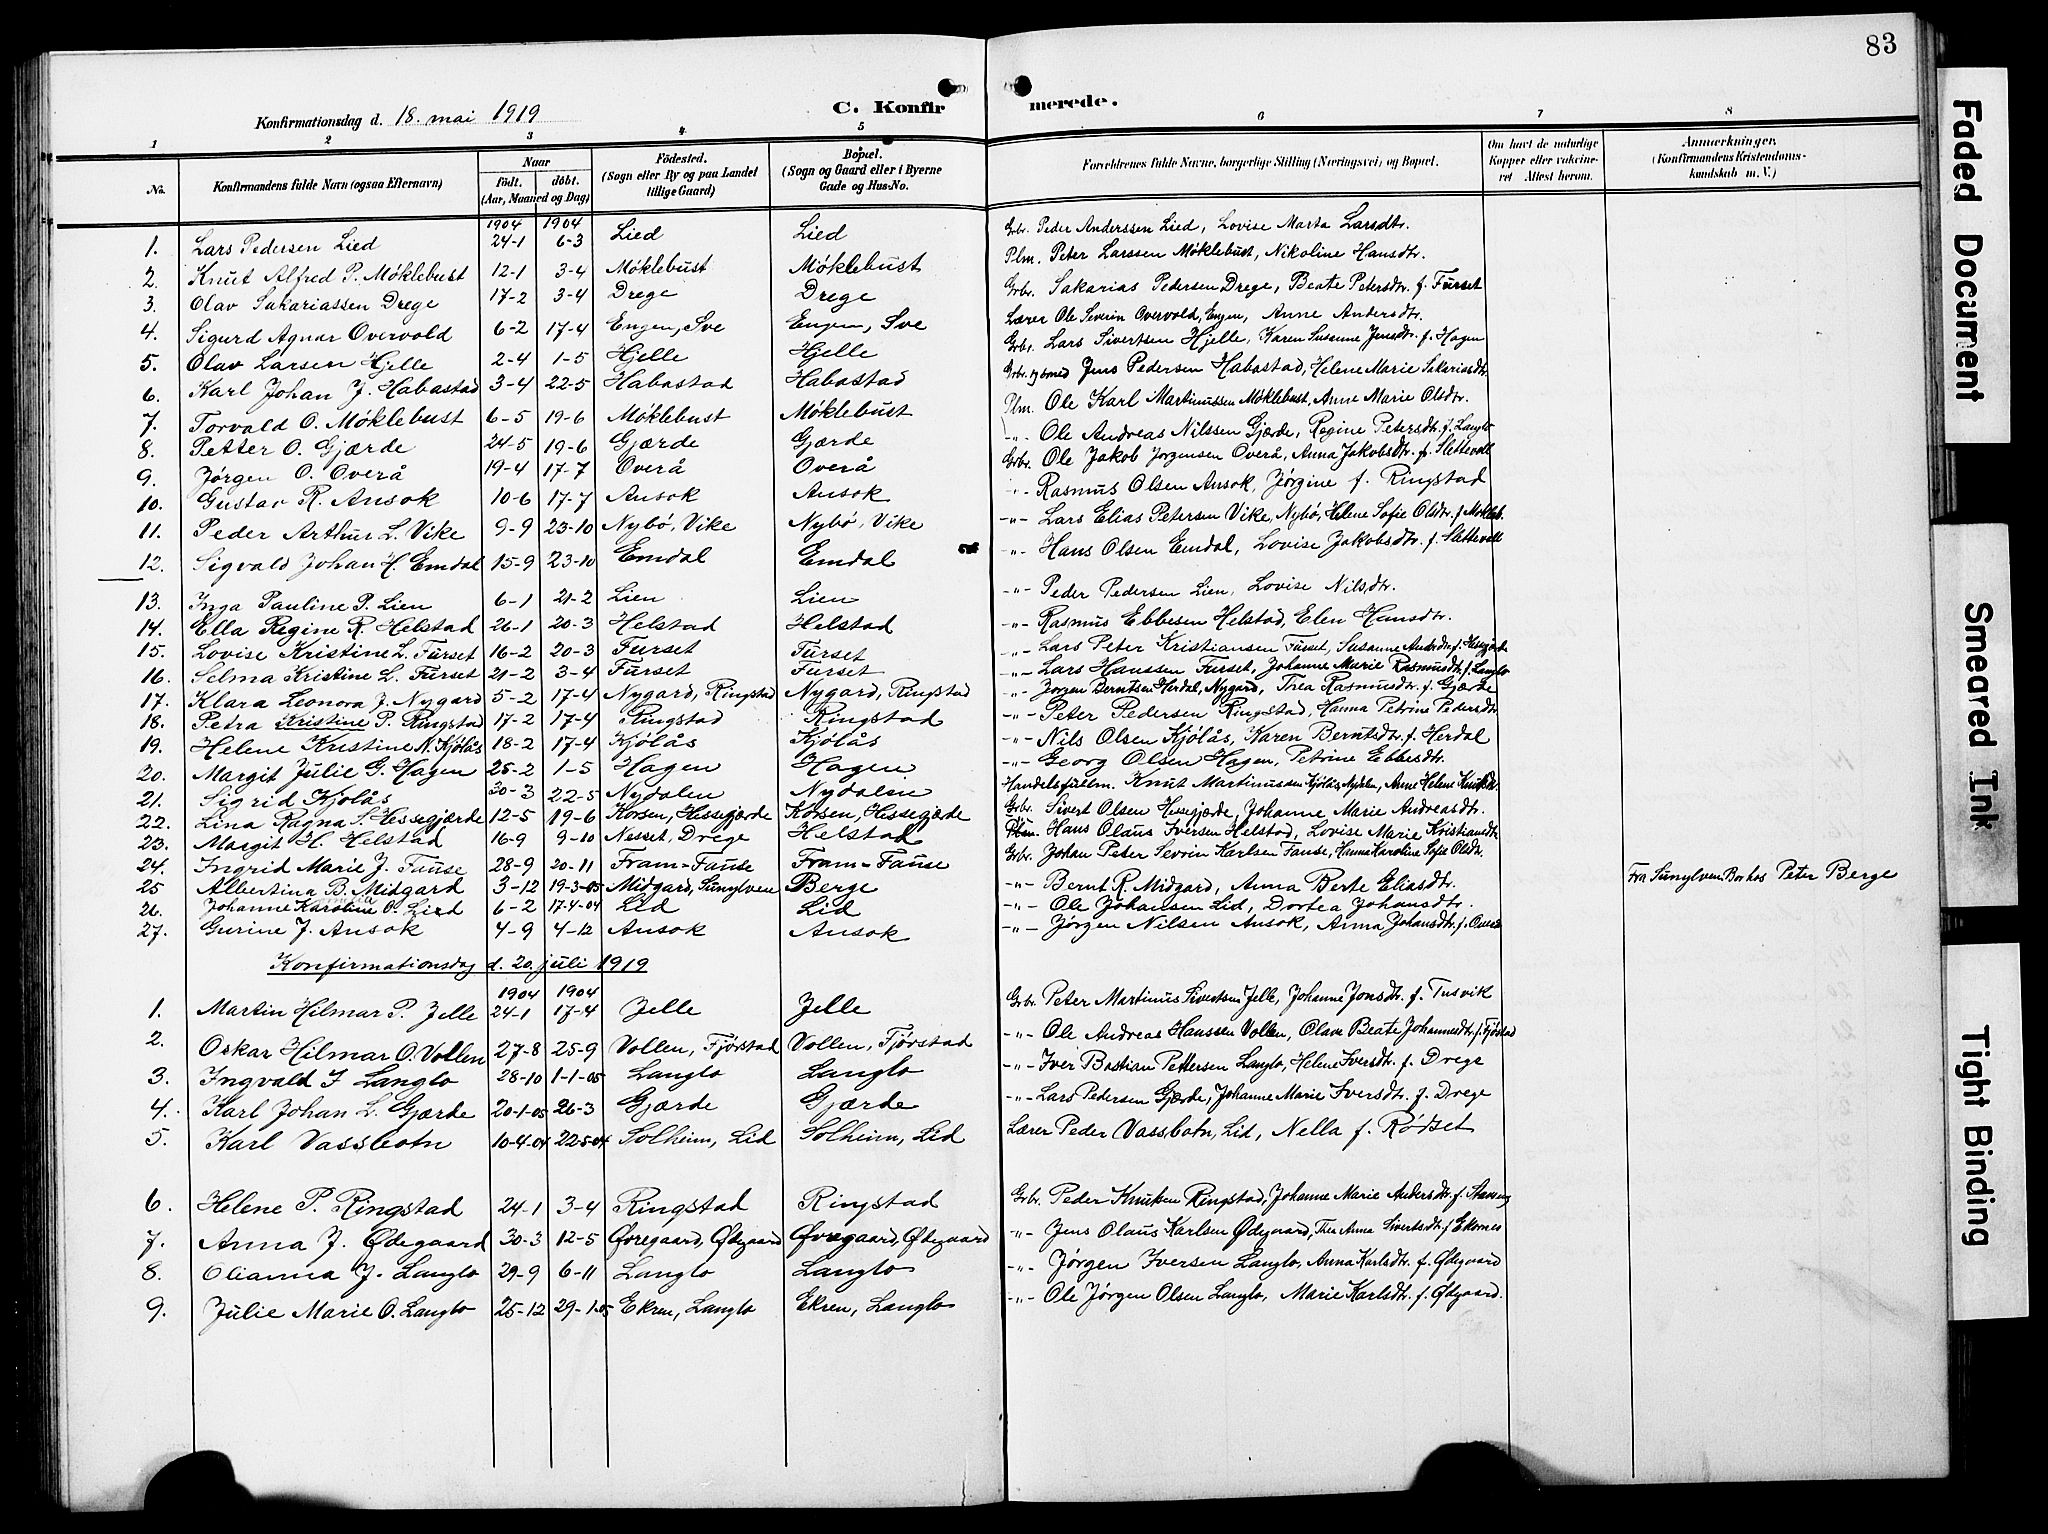 83
C. Konfirmerede.
Konfirmationsdag d. 18. mai 1919
1 2 3 4 5 6 7 8
No. | Konfirmandens fulde Navn (ogsaa Efternavn) | Naar født. døbt. (Aar, Maaned og Dag) | Fødested. (Sogn eller By og paa Landet tillige Gaard) | Bopæl. (Sogn og Gaard eller i Byerne Gade og Hus-No. | Forældrenes fulde Navne, borgerlige Stilling (Næringsvei) og Bopæl. | Om havt de naturlige Kopper eller vaccineret Attest herom. | Anmærkninger, (Konfirmandens Kristendomskundskab m. V.)
1904 1904
1. Lars Pedersen Lied 24-1 6-3 Lied Lied Grbr. Peder Anderssen Lied, Lovise Marta Larsdtr.
2. Knut Alfred P. Møklebust 12-1 3-4 Møklebust Møklebust Plm. Peter Larssen Møklebust, Nikoline Hansdtr.
3. Olav Sakariassen Drege 17-2 3-4 Drege Drege Grbr. Sakarias Pedersen Drege, Beate Petersdtr. f. Furset
4. Sigurd Agnar Overvold 6-2 17-4 Engen, Sve Engen, Sve Lærer Ole Severin Overvold, Engen, Anne Andersdtr.
5. Olav Larsen Hjelle 2-4 1-5 Hjelle Hjelle Grbr. Lars Sivertsen Hjelle, Karen Susanne Jensdtr. f. Hagen
6. Karl Johan J. Habostad 3-4 22-5 Habostad Habostad Grbr. og smed Jens Pedersen Habostad, Helene Marie Sakariasdtr.
7. Torvald O. Møklebust 6-5 19-6 Møklebust Møklebust Plm. Ole Karl Martinussen Møklebust, Anne Marie Olsdtr.
8. Petter O. Gjærde 24-5 19-6 Gjærde Gjærde -"- Ole Andreas Nilssen Gjærde, Regine Petersdtr. f. Langlo
9. Jørgen O. Overå 19-4 17-7 Overå Overå Grbr. Ole Jakob Jørgensen Overå, Anna Jakobsdtr. f. Slettevoll
10. Gustav R. Ansok 10-6 17-7 Ansok Ansok -"- Rasmus Olsen Ansok, Jørgine f. Ringstad
11. Peder Arthur L. Vike 9-9 23-10 Nybø, Vike Nybø, Vike -"- Lars Elias Petersen Vike, Nybø, Helene Sofie Olsdtr. f. Mökleb.
12. Sigvald Johan H. Emdal 15-9 23-10 Emdal Emdal -"- Hans Olsen Emdal, Lovise Jakobsdtr. f. Slettevoll
13. Inga Pauline P. Lien 6-1 21-2 Lien Lien -"- Peder Pedersen Lien, Lovise Nilsdtr.
14. Ella Regine R. Helstad 26-1 20-3 Helstad Helstad -"- Rasmus Ebbesen Helstad, Elen Hansdtr.
15. Lovise Kristine L. Furset 16-2 20-3 Furset Furset -"- Lars Peter Kristiansen Furset, Susanne Andersdtr. f. Hessegjerde
16. Selma Kristine L. Furset 21-2 3-4 Furset Furset -"- Lars Hanssen Furset, Johanne Marie Rasmusdtr. f. Langlo
17. Klara Leonora J. Nygard 5-2 17-4 Nygard, Ringstad Nygard, Ringstad -"- Jørgen Berntsen Herdal, Nygard, Thea Rasmusdtr. f. Gjærde
18. Petra Kristine P. Ringstad 17-2 17-4 Ringstad Ringstad -"- Peter Pedersen Ringstad, Hanna Petrine Pedersdtr
19. Helene Kristine N. Kjölås 18-2 17-4 Kjölås Kjölås -"- Nils Olsen Kjölås, Karen Berntsdtr. f. Herdal
20. Margit Julie G. Hagen 25-2 1-5 Hagen Hagen -"- Georg Olsen Hagen, Petrine Ebbesdtr.
21. Sigrid Kjölås 30-3 22-5 Nydalen Nydalen Handelsfullm. Knut Martinussen Kjölås, Nydalen, Anne Helene Knutsdtr.
22. Lina Ragna S. Hessegjærde 12-5 19-6 Korsen, Hessegjærde Korsen, Hessegjæde Grbr. Sivert Olsen Hessegjærde, Johanne Marie Andreasdtr.
23. Margit H. Helstad 16-9 9-10 Nesset, Drege Helstad Hans Olaus Iversen Helstad, Lovise Marie Kristiansdtr
24. Ingrid Marie J. Fause 28-9 20-11 Fram-Fause Fram-Fause Grbr. Johan Peter Severin Karlsen Fause, Hanna Karoline Sofie Olsdtr.
25 Albertina B. Midgard 3-12 19-3-05 Midgard, Sunylven Berge -"- Bernt R. Midgard, Anna Berte Eliasdtr. Fra Sunylven. Bor hos Peter Berge
26. Johanne Karoline O. Lied 6-2 17-4-04 Lid Lid -"- Ole Johansen Lid, Dortea Johansdtr.
27. Gurine J. Ansok 4-9 4-12 Ansok Ansok -"- Jørgen Nilsen Ansok, Anna Johansdtr. f. Overå
Konfirmationsdag d. 20. juli 1919
1904 1904
1. Martin Hilmar P. Jelle 24-1 17-4 Jelle Jelle Grbr. Peter Martinus Sivertsen Jelle, Johanne Jonsdtr. f. Tusvik
2. Oskar Hilmar O. Vollen 27-8 25-9 Vollen, Fjörstad Vollen, Fjörstad -"- Ole Andreas Hanssen Vollen, Olave Beate Johannesdtr. f. Fjörstad
3. Ingvald I Langlo 28-10 1-1-05 Langlo Langlo -"- Iver Bastian Pettersen Langlo, Helene Iversdtr. f. Drege
4. Karl Johan L. Gjærde 20-1-05 26-3 Gjærde Gjærde -"- Lars Pedersen Gjærde, Johanne Marie Iversdtr. f. Drege
5. Karl Vassbotn 10-4-04 22-5-04 Solheim, Lid Solheim, Lid Lærer Peder Vassbotn, Lid, Nella f. Rødset
6. Helene P. Ringstad 24-1 3-4 Ringstad Ringstad Grbr. Peder Knutsen Ringstad, Johanne Marie Andersdtr. f.
7. Anna J. Ødegaard 30-3 12-5 Øvregaard, Ødegaard Øvregaard, Ødegaard -"- Jens Olaus Karlsen Ødegaard, Thea Anna Sivertsdtr. f. Ekornes
8. Olianna J. Langlo 29-9 6-11 Langlo Langlo -"- Jørgen Iversen Langlo, Anna Karlsdtr. f. Ødegaard
9. Julie Marie O. Langlo 25-12 29-1-05 Ekren, Langlo Ekren, Langlo -"- Ole Jørgen Olsen Langlo, Marie Karlsdtr. f. Ødegaard.
Faded Document
Smeared Ink
Tight Binding